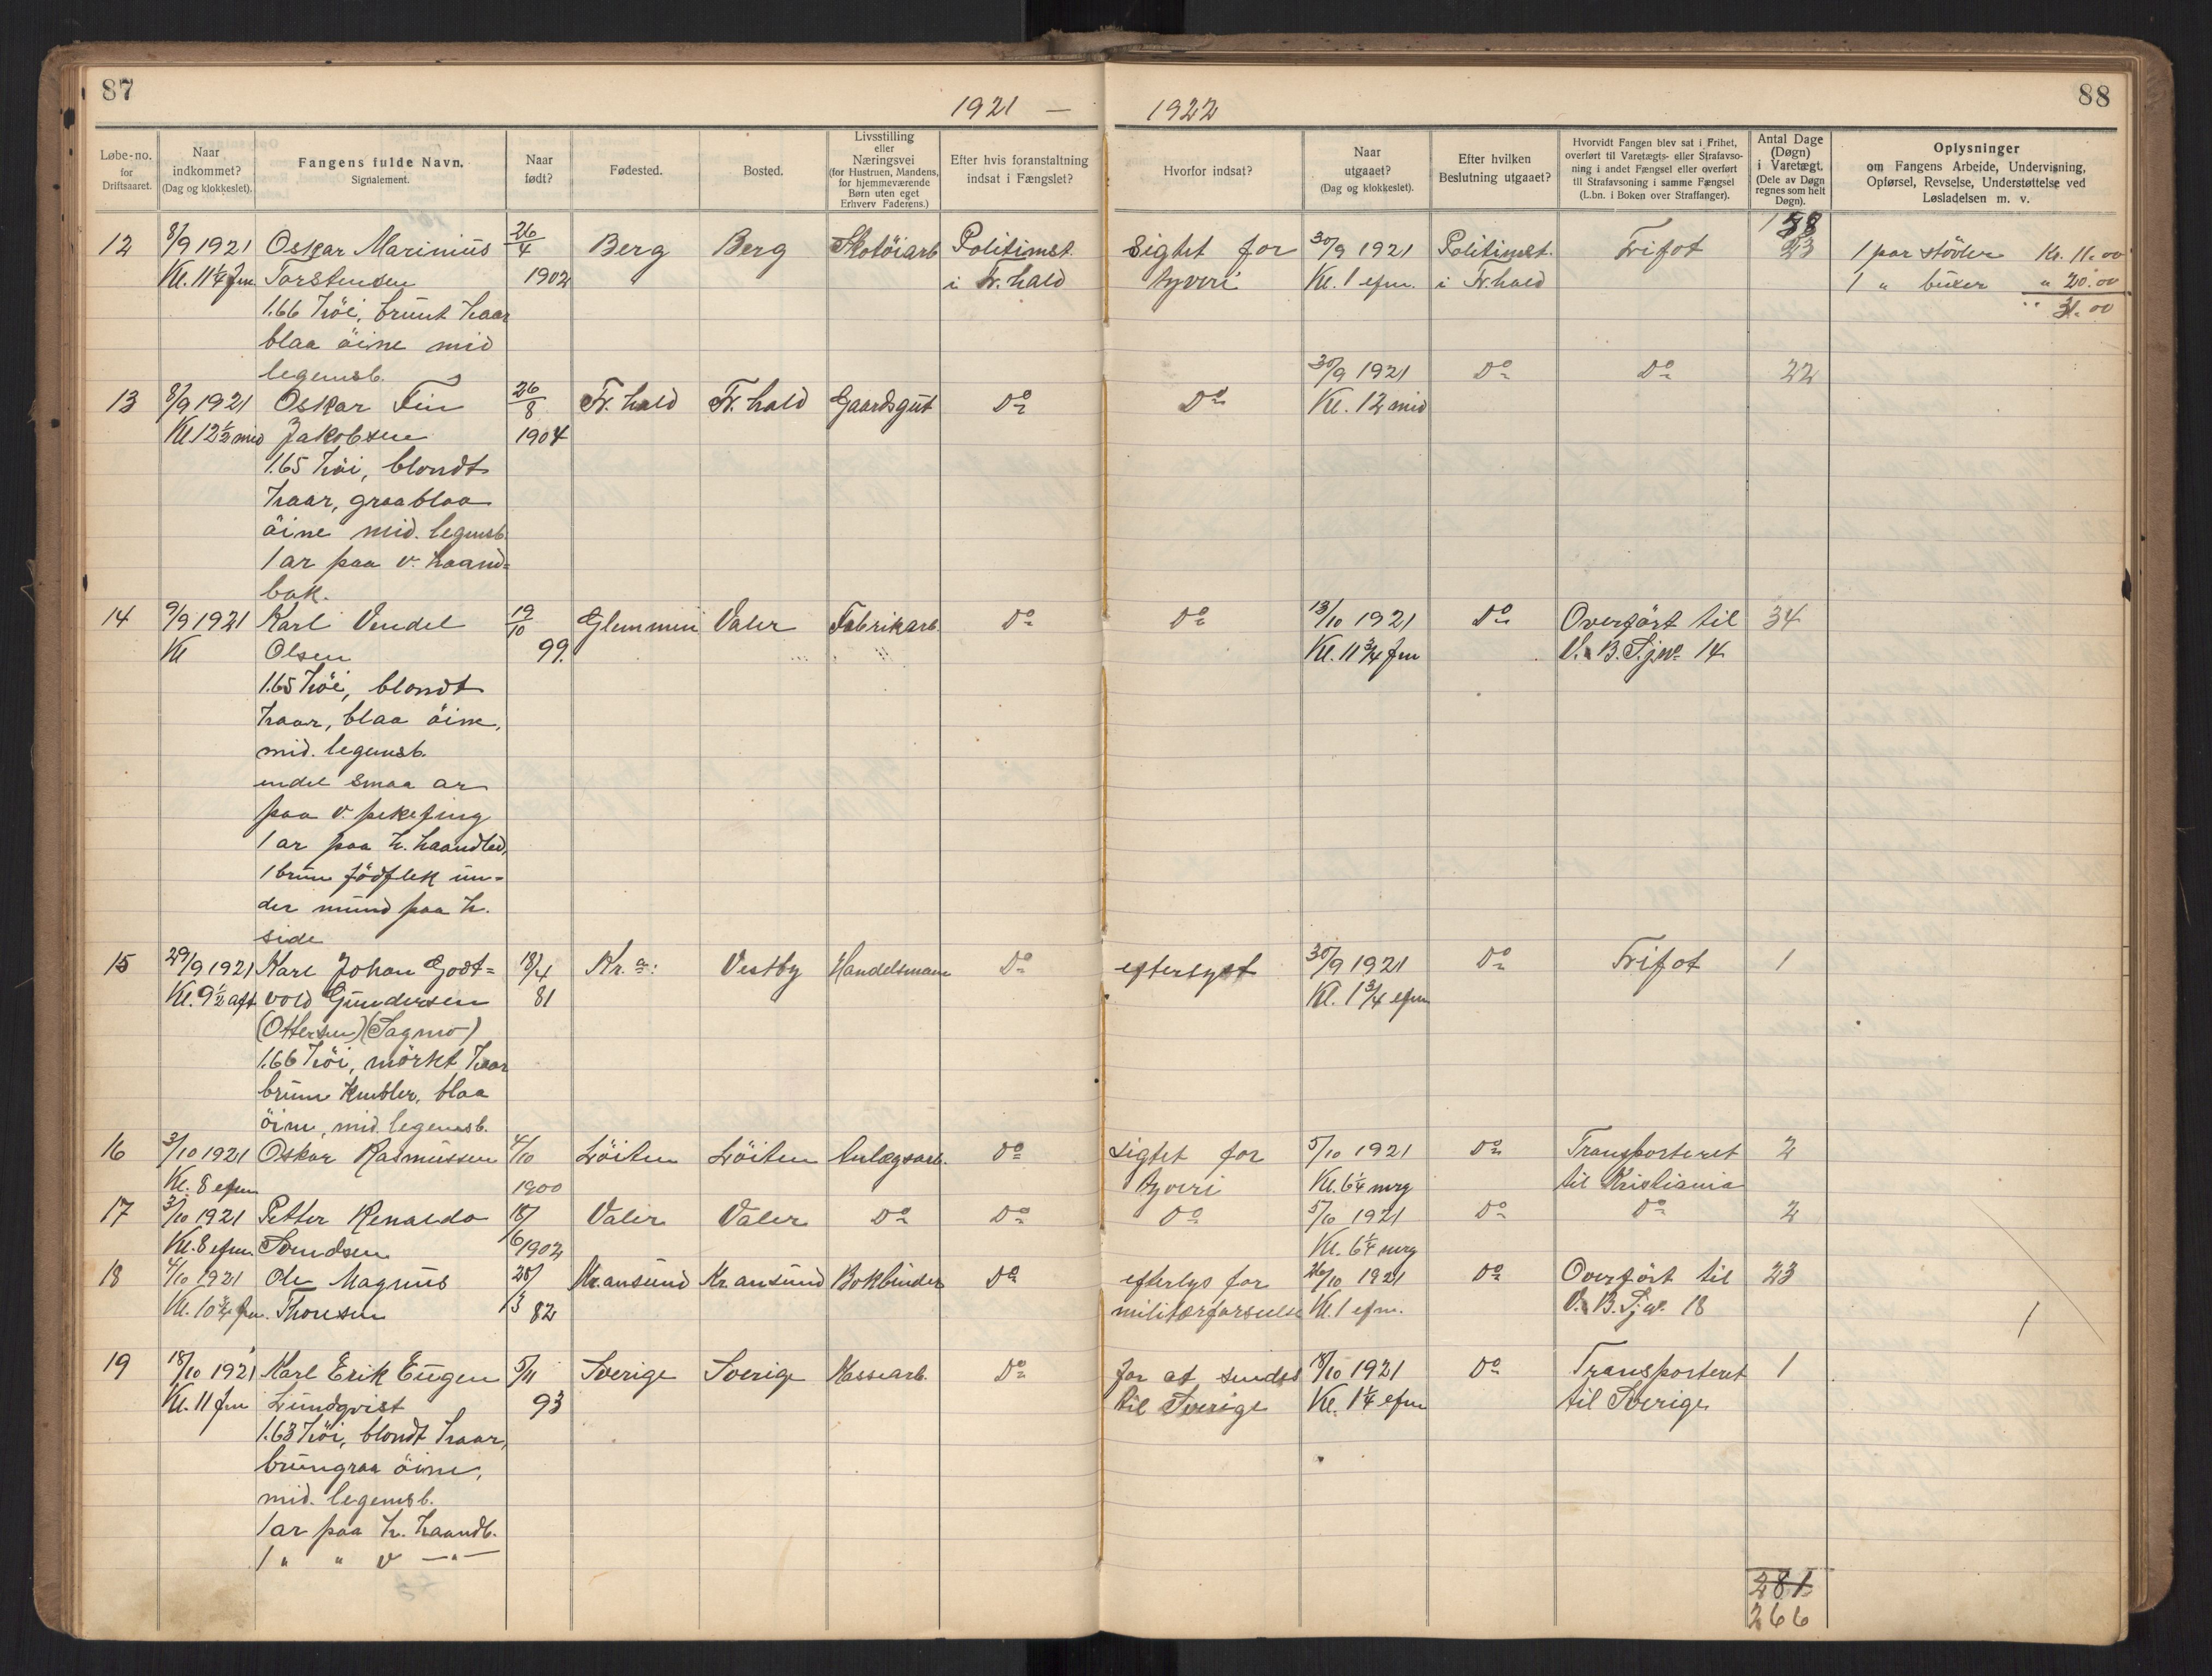 87
1921 —
1922
88
Løbe-no. for Driftsaaret.
Naar indkommet? (Dag og klokkeslet).
Fangens fulde Navn. Signalement.
Naar født?
Fødested.
Bosted.
Livsstilling eller Næringsvei (for Hustruen, Mandens, for hjemmeværende Børn uten eget Erhverv Faderens.)
Efter hvis foranstaltning indsat i Fængslet?
Hvorfor indsat?
Naar utgaaet? (Dag og klokkeslet).
Efter hvilken Beslutning utgaaet?
Hvorvidt Fangen blev sat i Frihet, overført til Varetægts- eller Strafavsoning i andet Fængsel eller overført til Strafavsoning i samme Fængsel (L.bn. i Boken over Straffanger).
Antal Dage (Døgn) i Varetægt. (Dele av Døgn regnes som helt Døgn).
Oplysninger om Fangens Arbeide, Undervisning, Opførsel, Revselse, Understøttelse ved Løsladelsen m. v.
12 8/9 1921 Oskar Marinius 26/4 Berg Berg Skotöiarb Politimst. Sigtet for 30/9 1921 Politimst. Trifot 23 1 par stövler Kr. 11.00
Kl. 11 1/4 fm Torstensen 1902 i Fr. hald tyveri Kl. 1 efm. i Fr. hald 1 " buxer " 20.00
1.66 höi, brunt haar 31.00
blaa öine mid
legemsb. 30/9 1921 Do Do 22
13 8/9 1921 Oskar Fin 26/8 Fr. hald Fr. hald Gaardsgut Do Do Kl. 12 mid
Kl 12 1/2 mid Jakobsen 1904
1.65 höi, blondt
haar, graablaa
öine mid. legemsb.
1 ar paa v. haand=
bak.
14 9/9 1921 Karl Vendel 19/10 Glemmin Valer Fabrikarb. Do Do 13/10 1921 Do Overfört til 34
Kl Olsen 99. Kl. 11 3/4 fm 14
1.65 höi, blondt
haar, blaa öine,
mid. legemsb.
endel smaa ar
paa v. pekefing
1 ar paa h. haandled,
1 brun födflek un=
der mund paa h.
side
15 29/9 1921 Karl Johan Godt= 18/4 Kr.a: Vestby Handelsmann Do efterlyst 30/9 1921 Do Trifot 1
Kl. 9 1/2 aft vold Gundersen 81 Kl. 1 3/4 efm
(Ottersen) (Sagmo)
1.66 höi, mörkt haar
brune knebler, blaa
öine, mid. legemsb.
16 3/10 1921 Oskar Rasmussen 4/10 Löiten Löiten Anlægsarb. Do Sigtet for 5/10 1921 Do Transporteret 2
Kl. 8 efm 1900 tyveri Kl. 6 1/4 mrg til Kristiania
17 3/10 1921 Petter Renaldo 18/6 Valer Valer Do Do Do 5/10 1921 Do Do 2
Kl. 8 efm Svendsen 1902 Kl. 6 1/4 mrg
18 4/10 1921 Ole Magnus 28/3 Kr.ansund Kr.ansund Bokbinder Do efterlys for 26/10 1921 Do Overfört til 23
Thoresen 82 militærforseelse Kl. 1 efm. 18
19 18/10 1921 Karl Erik Eugen 5/11 Sverige Sverige Kassearb. Do for at sendes 18/10 1921 Do Transporteret 1
Kl. 11 fm Lundqvist 93 til Sverige Kl. 1 1/4 efm til Sverige
1.63 höi, blondt haar,
brungraa öine,
mid. legemsb.
1 ar paa h. haandb.
1 " " v —"—
281
266